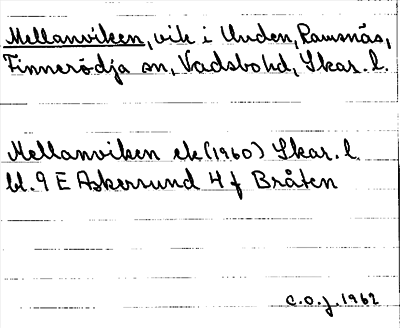 Mellanviken, vik i Unden, Ramsnäs,
Finnerödja sn, Vadsbo hd, Skar. l.
Mellanviken ek (1960) Skar. l.
bl. 9 E Askersund 4 f Bråten
C.O.J. 1962